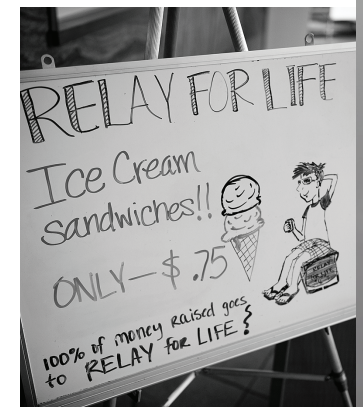 RELAY FOR LIFE
Ice Cream
sandwiches!!
ONLY - $ .75
100% of money raised goes
to RELAY for LIFE!
RELAY